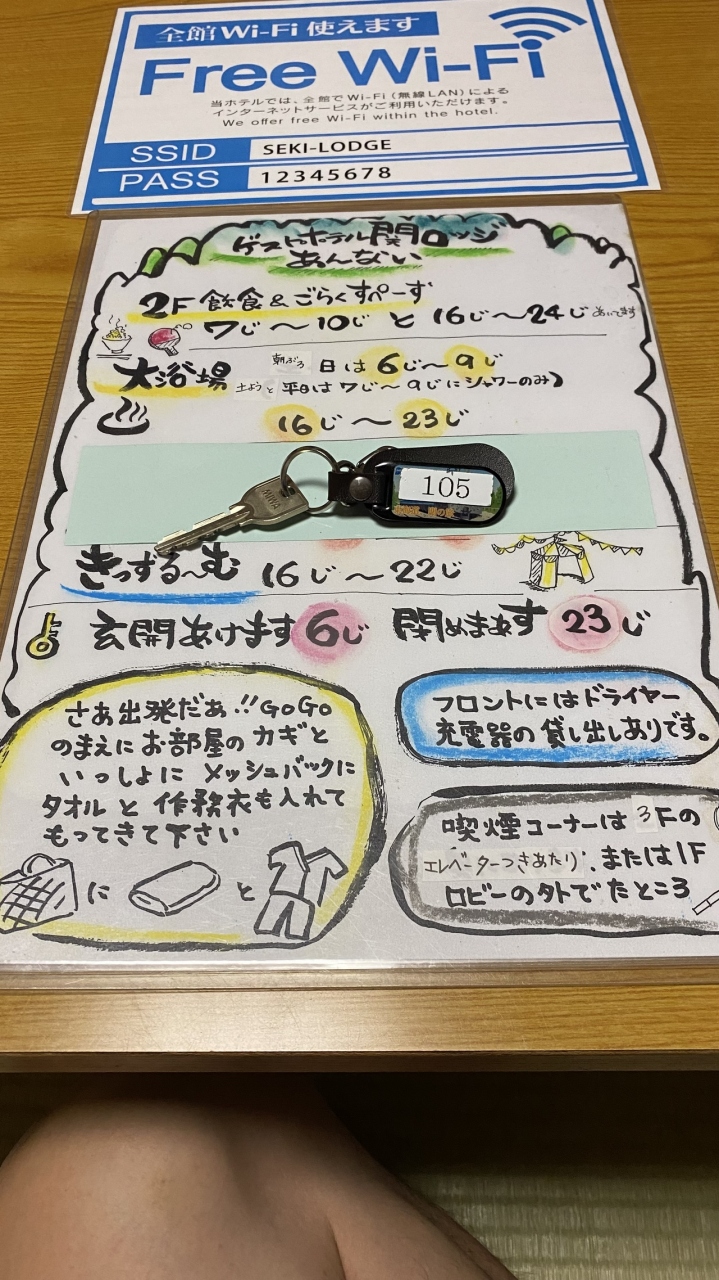 全館Wi-Fi使えます
Free Wi-Fi
当ホテルでは、全館でWi-Fi(無線LAN)による
インターネットサービスがご利用いただけます。
We offer free Wi-Fi within the hotel.
SSID SEKI-LODGE
PASS 12345678
ゲストホテル関ロッジ
あんない
2F 飲食&ごらくすぺーす
7じ〜10じ と 16じ〜24じ あいてます
大浴場 朝ぶろ 日は6じ〜9じ
土ようと 平日は7じ〜9じにシャワーのみ)
16じ〜23じ
MIWA
105
きっずる〜む 16じ〜22じ
玄関あけます6じ 閉めまぁす23じ
さあ出発だぁ!!GoGo
のまえにお部屋のカギと
いっしょに メッシュバックに
タオルと作務衣も入れて
もってきて下さい
に と
フロントにはドライヤー
充電器の貸し出しありです。
喫煙コーナーは3Fの
エレベーターつきあたり、または1F
ロビーの外でたところ